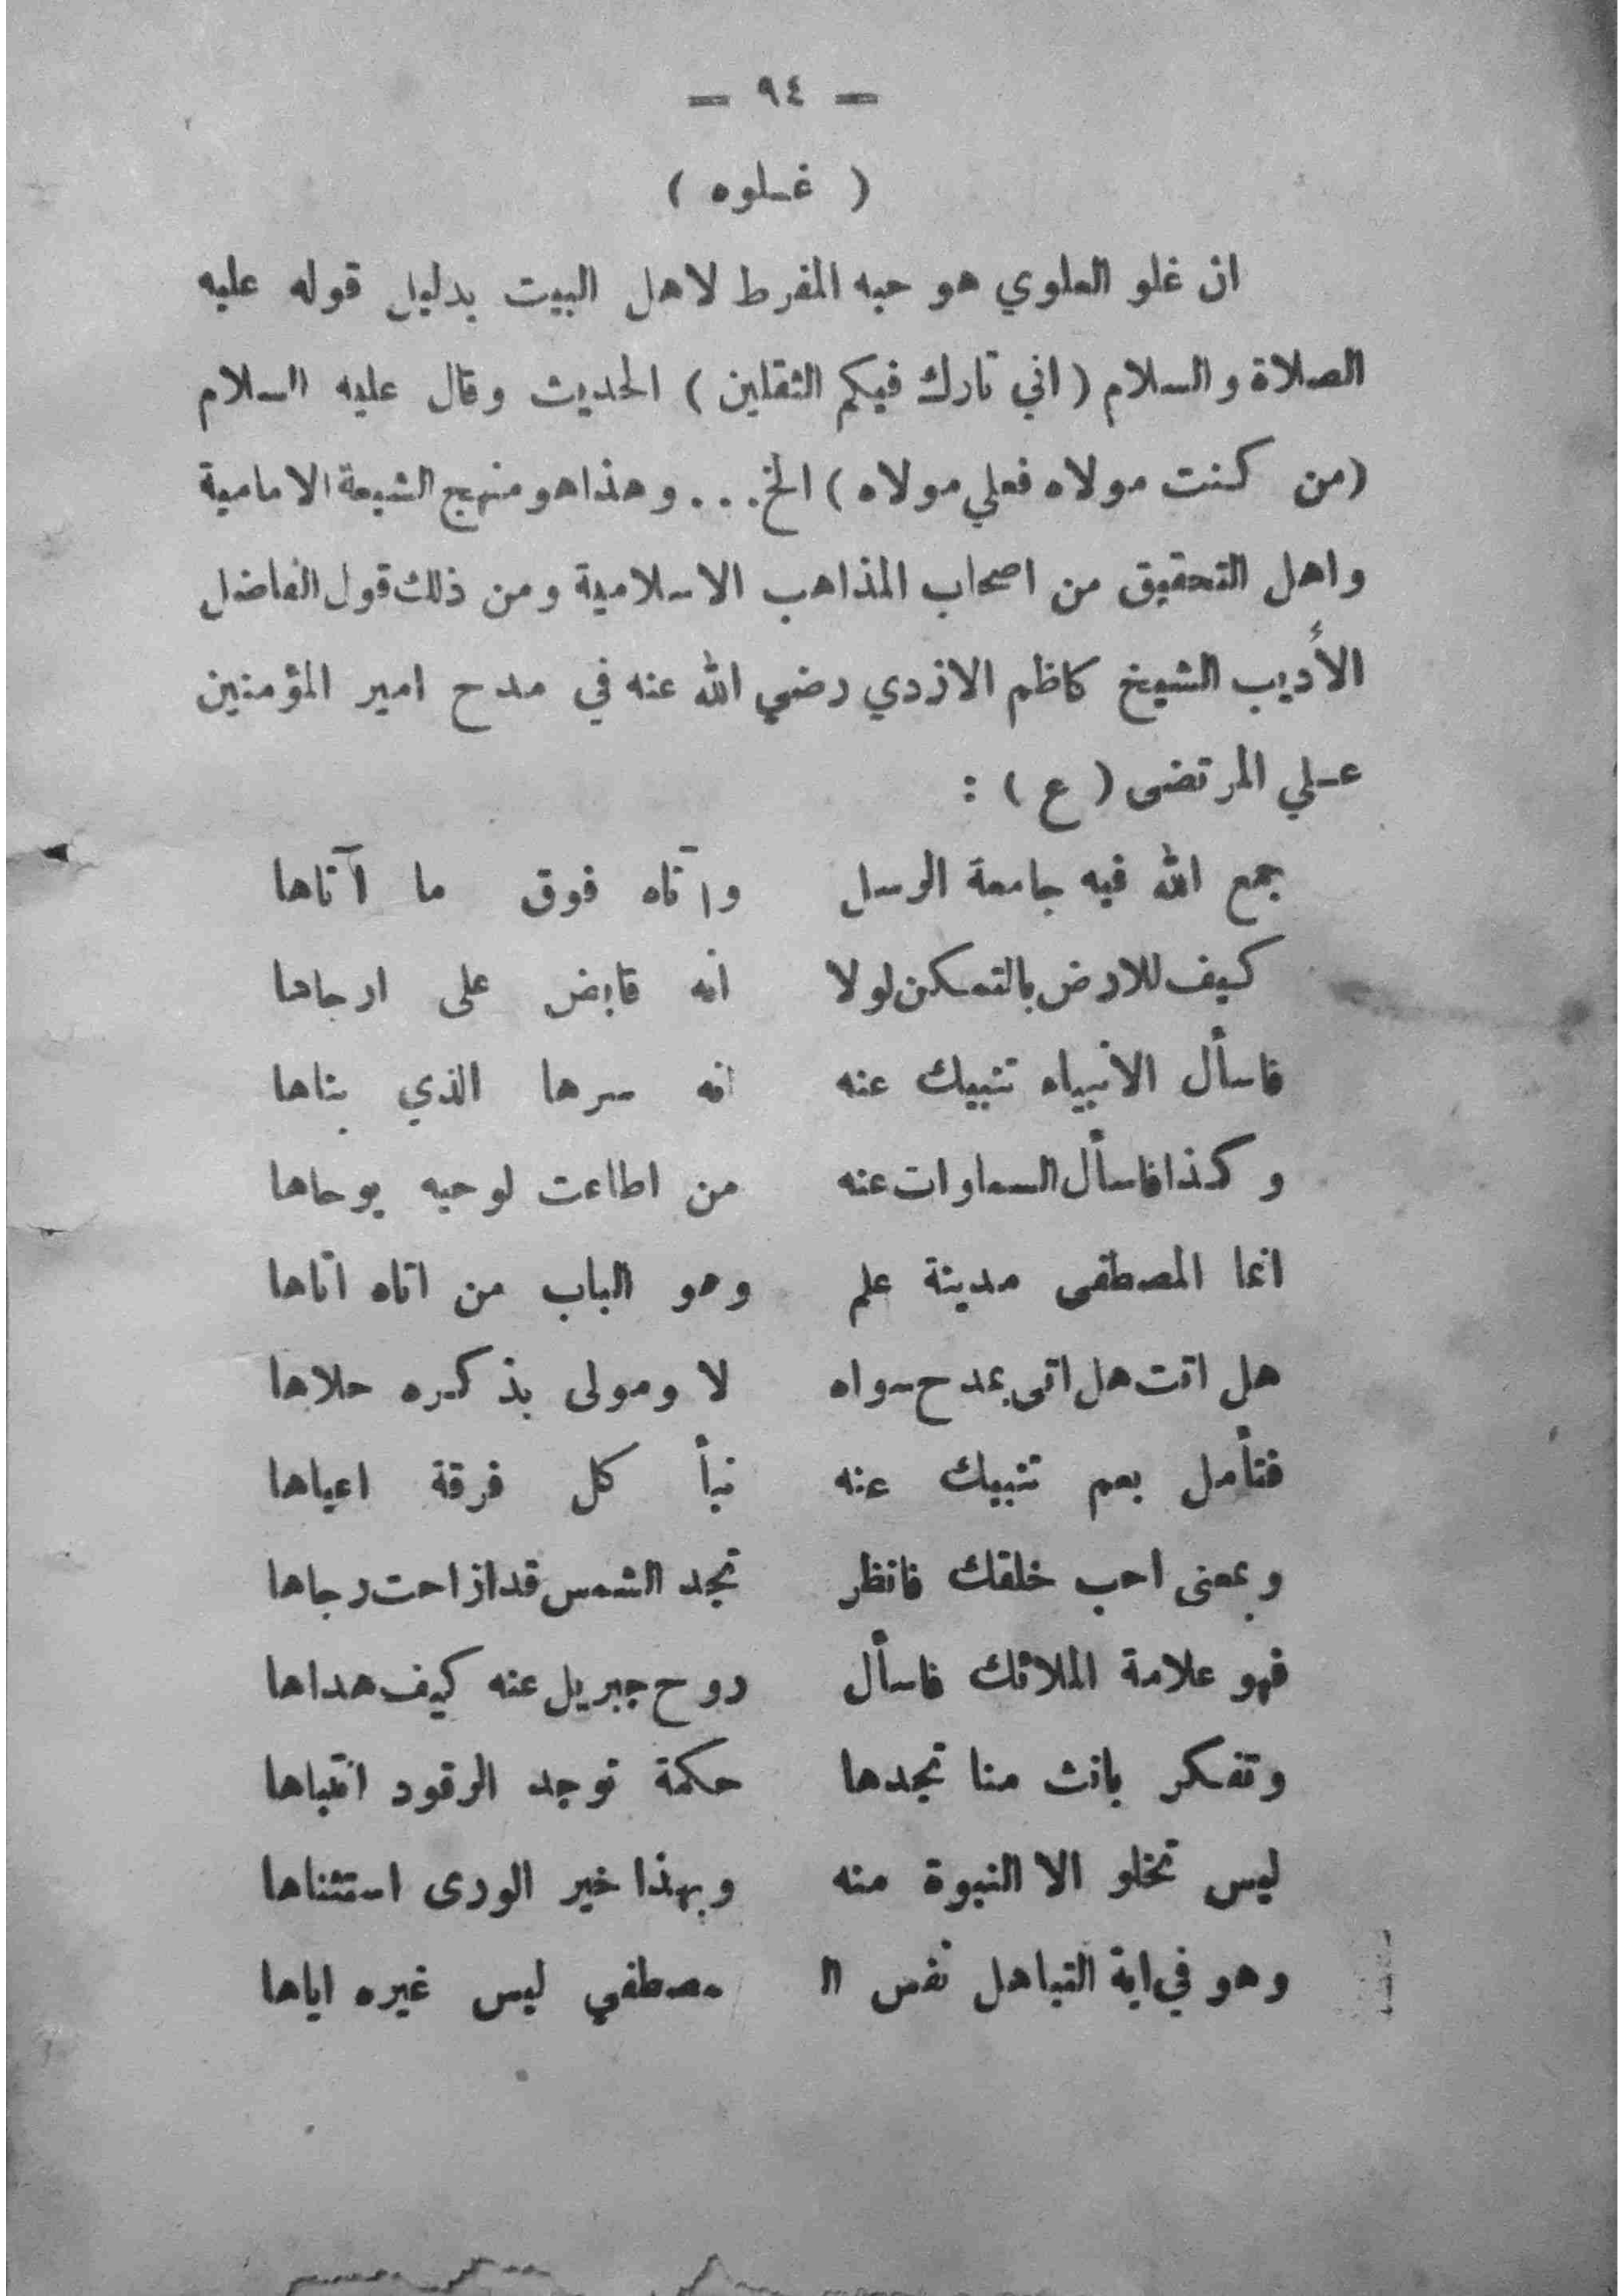 — ٩٤ —
( غلوه )
ان غلو العلوي هو حبه المفرط لاهل البيت بدليل قوله عليه
الصلاة والسلام ( اني تارك فيكم الثقلين ) الحديث وقال عليه السلام
(من كنت مولاه فعلي مولاه ) الخ . . . وهذا هو منهج الشيعة الامامية
واهل التحقيق من اصحاب المذاهب الاسلامية ومن ذلك قول الفاضل
الأديب الشيخ كاظم الازدي رضي الله عنه في مدح امير المؤمنين
علي المرتضى ( ع ) :
جمع الله فيه جامعة الرسل وآتاه فوق ما آتاها
كيف للارض بالتمكن لولا انه قابض على ارجاها
فاسأل الانبياء تنبيك عنه انه سرها الذي بناها
وكذا فاسأل السماوات عنه من اطاعت لوحيه يوحاها
انما المصطفى مدينة علم وهو الباب من اتاه اتاها
هل اتت هل اتى بمدح سواه لا ومولى بذكره حلاها
فتأمل بعم تنبيك عنه نبأ كل فرقة اعياها
وبمعنى احب خلقك فانظر تجد الشمس قد ازاحت دجاها
فهو علامة الملائك فاسأل روح جبريل عنه كيف هداها
وتفكر بانت منا تجدها حكمة توجد الرقود انتباها
ليس تخلو الا النبوة منه وبهذا خير الورى استثناها
وهو في اية التباهل نفس الـ مصطفي ليس غيره اياها